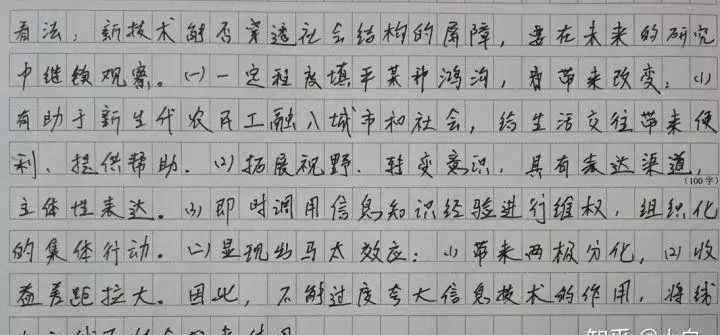 看法：新技术能否穿透社会结构的屏障，要在未来的研究
中继续观察。(一)一定程度填平某种鸿沟，看带来改变：(1)
有助于新生代农民工融入城市和社会，给生活交往带来便
利、提供帮助。(2)拓展视野、转变意识，具有表达渠道，
(100字)
主体性表达。(3)即时调用信息知识经验进行维权，组织化
的集体行动。(二)显现出马太效应：(1)带来两极分化，(2)收
益差距拉大。因此，不能过度夸大信息技术的作用，将线
知乎